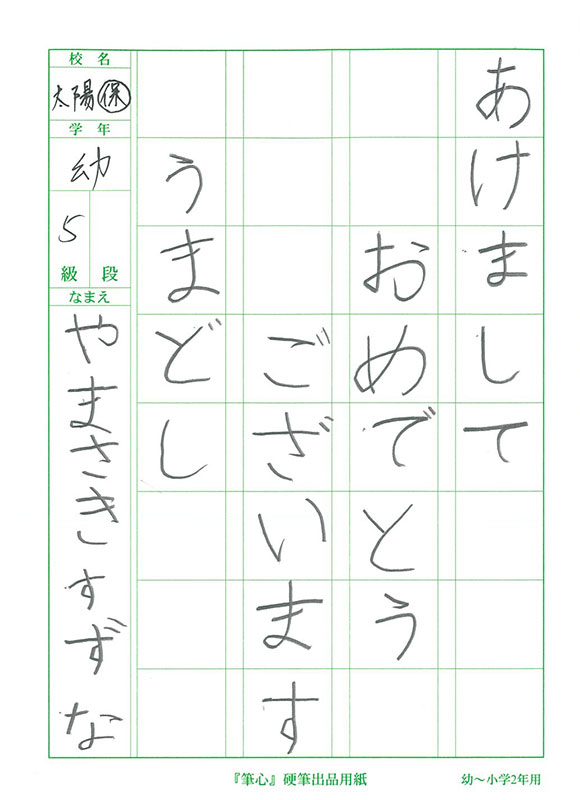 あけまして
おめでとう
ございます
うまどし
校名
太陽㋭保
学年
幼
5
級 段
なまえ
やまさきすずな
『筆心』硬筆出品用紙
幼〜小学2年用